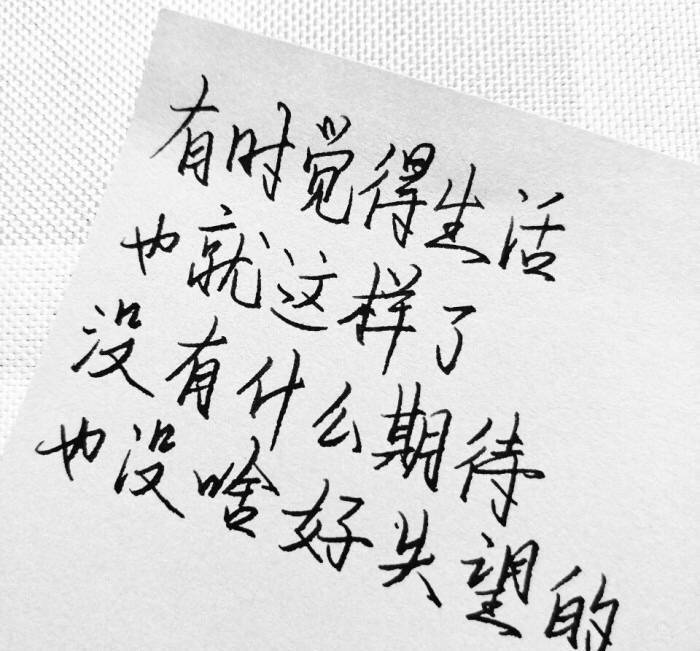 有时觉得生活
也就这样了
没有什么期待
也没啥好失望的